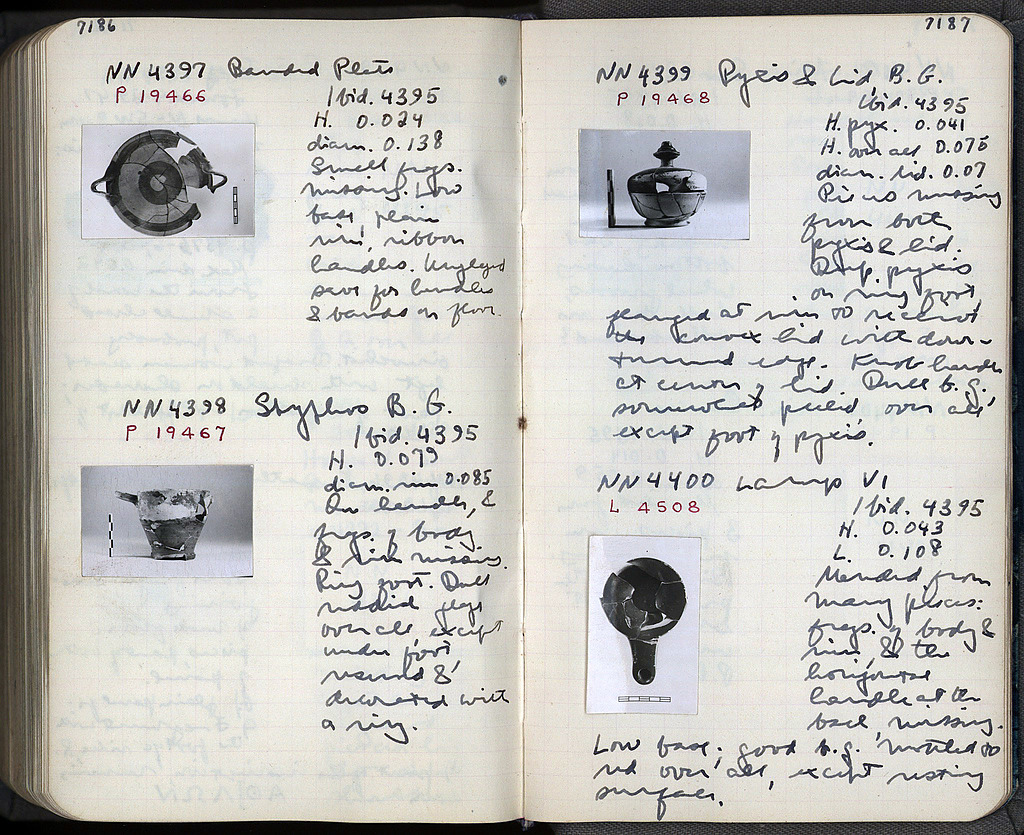 7186
NN 4397 Banded Plate
P 19466
Ibid. 4395
H. 0.024
diam. 0.138
Small frgs.
missing. Low
base, plain
rim, ribbon
handles. Unglazed
save for handles
& bands on floor.
NN 4398 Skyphos B. G.
P 19467
Ibid. 4395
H. 0.079
diam. rim 0.085
One handle, &
frgs. of body
& rim missing.
Ring foot. Dull
reddish glaze
over all, except
under foot
reserved &
decorated with
a ring.
7187
NN 4399 Pyxis & Lid, B. G.
P 19468
Ibid. 4395
H. pyx. 0.041
H. over all 0.075
diam. lid. 0.07
Pieces missing
from both
pyxis & lid.
Deep pyxis
on ring foot,
flanged at rim to receive
the convex lid with down-
turned edge. Knob handle
at center of lid. Dull b. g.
somewhat peeled over all,
except foot of pyxis.
NN 4400 Lamp VI
L 4508
Ibid. 4395
H. 0.043
L. 0.108
Mended from
many pieces:
frgs. of body &
rim, & the
horizontal
handle at the
back missing.
Low base; good b. g. mottled to
red over all, except resting
surface.